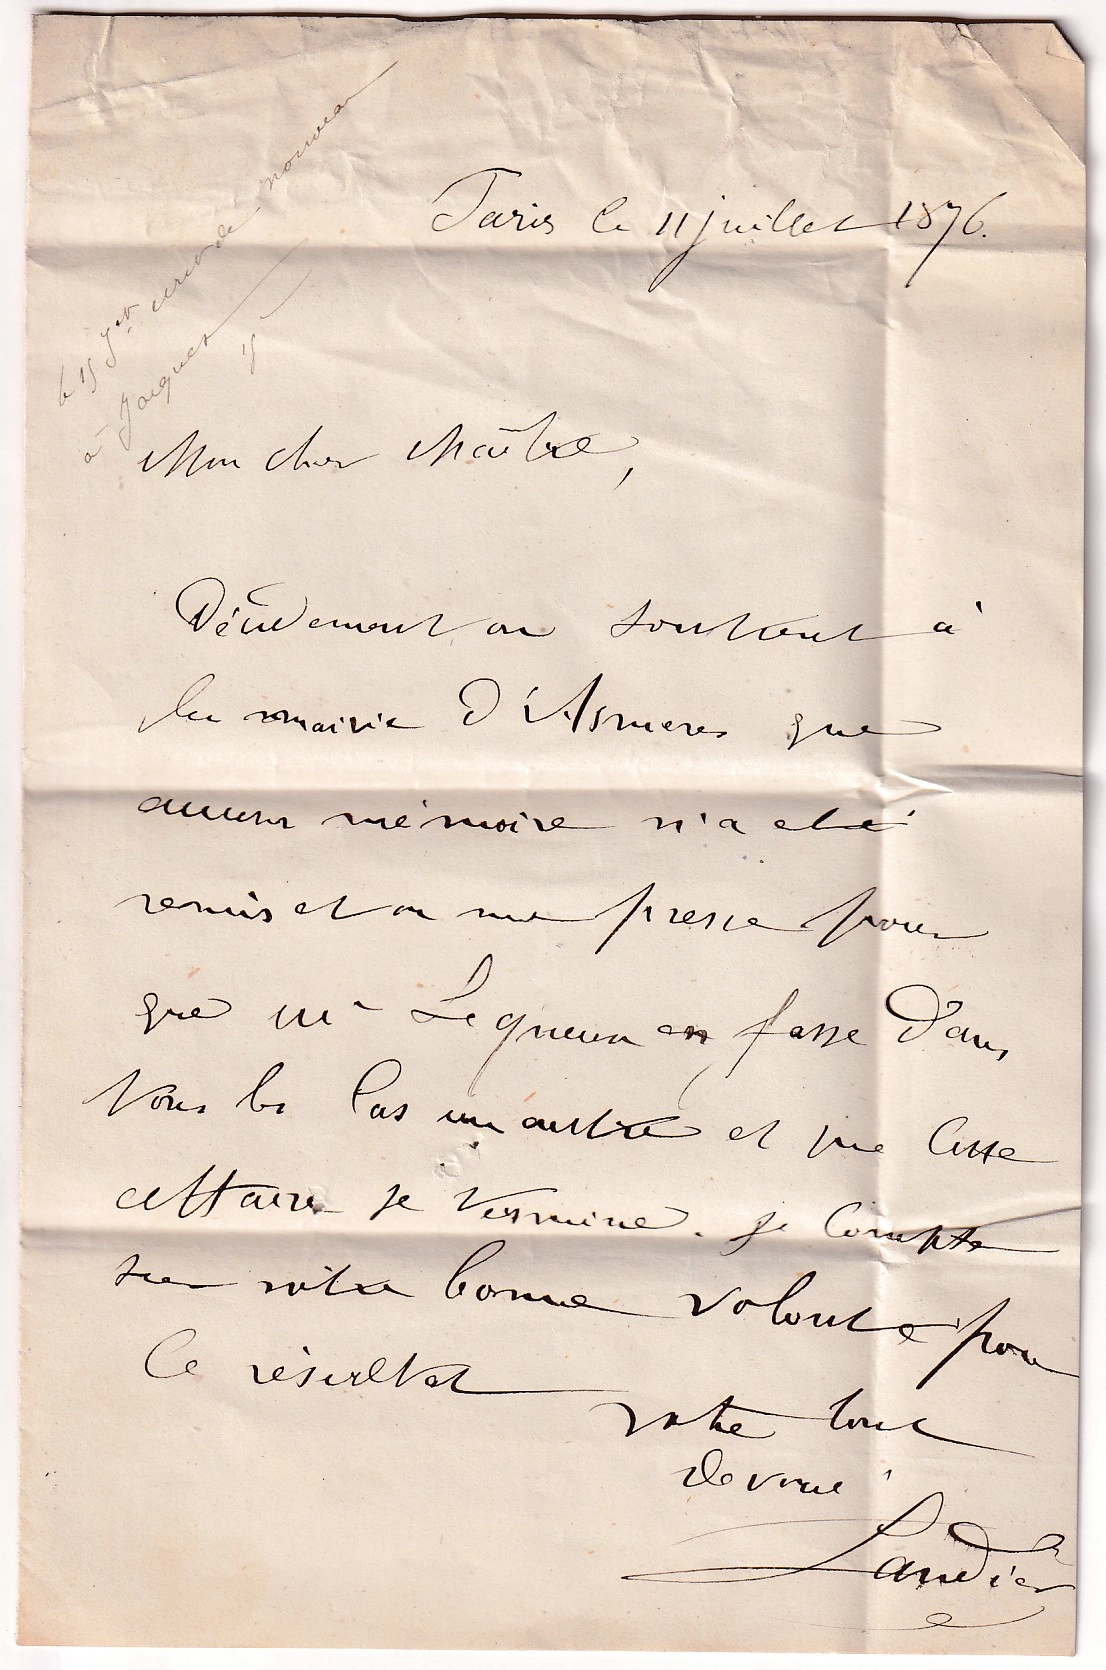 le 15 7bre écrit de nouveau
à Jacques
Paris le 11 juillet 1876.
Mon cher Maître,
Décidement on soutient à
la mairie d'Asnieres que
aucun mémoire n'a eté
remis et on me presse pour
que Mr Lequeux en fasse dans
tous les cas un autre et que cette
affaire se termine. Je compte
sur votre bonne volonté pour
ce résultat
votre tout
devoué
Landier